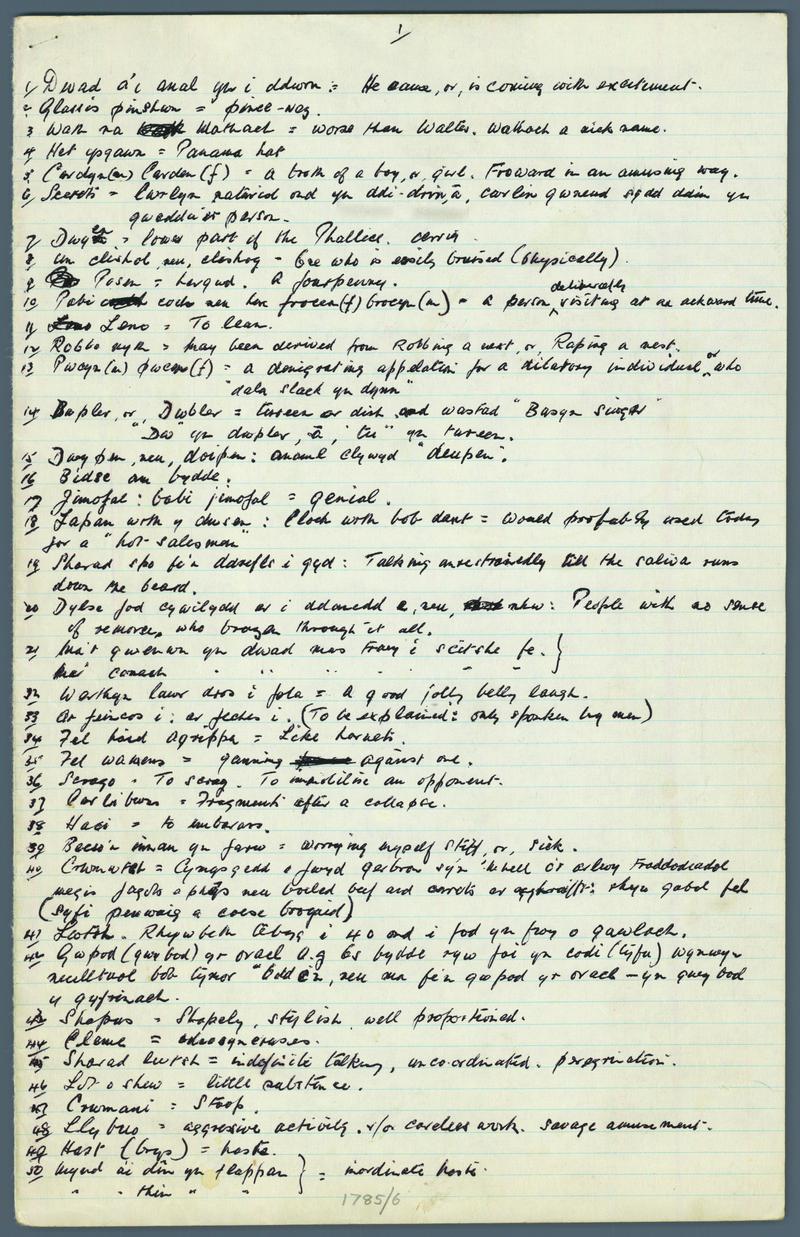 1/
1/ Dwad a'i anal yn i ddwrn := He came, or, is coming with excitement.
2. Glassis pinshwn = pince-nez.
3 Wath na Wathach = worse than Walter. Wathach a nick name.
4 Het ypgawn = Panama hat
5 Cardyn(m) Carden (f) = a broth of a boy, or, girl. Froward in an amusing way.
6 Secrets = Cwrlyn naturiol ond yn ddi-drin, carlin gwneud sydd ddim yn
gweddu i'r person.
7 = lower part of the
8 un clishol, neu, clishog - One who is easily bruised (physically).
9 Posen = hergwd. A fourpenny.
10 Pobi codi neu hen frocen(f) brocyn(m) = a person deliberately visiting at an ackward time.
11 Leno = To lean.
12 Robbo nyth = may been derived from Robbing a nest, or, Raping a nest.
13 Pwcyn(m) pwcen(f) = a denigrating appelation for a dilatory individual, or who
"dala slack yn dynn"
14 Bapler, or, Dwbler = tureen or dish wastad "Basyn Singer"
"Dw" yn dwpler, a, "tu" yn tureen.
15 Dwypen, neu, doipen: anaml clywyd "deupen".
16 Bidse am bydde.
17 Jimofal: babi jimofal = genial.
18 Japan worth y dwsen: Cloch worth bob dant = would probably used today
for a "hot salesman"
19 Sharad spo fi'n ddrefls i gyd: Talking unrestrainedly till the saliva runs
down the beard.
20 Dylse fod cywilydd ar i ddanedd e, neu, nhw: People with no sense
of remorse, who brazen through it all.
21 Ma'r gwenwn yn dwad mas trwy i scitshe fe. }
Mae conach " " " " "
32 Warthyn lawr dros i fola = A good jolly belly laugh.
33 Ar feincos i: ar feches i. (To be explained: only spoken by men)
34 Fel haid Agrippa = Like hornets.
35 Fel wamens = ganning against one.
36 Scrago - To scrag. To immobilise an opponent.
37 Carlibwns = Fragments after a collapse.
38 Haci = to embarass.
39 Becso'n innan yn farw = worrying myself stiff, or, sick.
40 Cwmwtsh = Cymysgedd o fwyd gerbron sy'n 'mhell o'r arlwy Traddodiadol
megis fagots a phys neu boiled beef and carrots er rhyw gabol fel
(Syfi penwaig a coese brogaid)
41 Lwtsh. Rhywbeth tebyg i 40 ond i fod yn fwy o gawlach.
42 Gwpod (gwybod) yr oracl A.g Os bydde ryw foi yn codi (tyfu) wynwyn
neulltuol bob tymor "Odd e'n, neu ma fe'n gwpod yr oracl - yn gwybod
y gyfrinach.
43 Shapus = Shapely, stylish, well proportioned.
44 Cleme = edeosyncrases.
45 Sharad lwtsh = indefinite talking, unco-ordinated. peregrination.
46 Lot o shew = little substance.
47 Crwmani = Stoop.
48 Llybro = aggressive activity. +/or careless work. savage amusement.
49 Hast (brys) = haste.
50 Mynd a'i din yn fflappan } = inordinate haste.
" " thin " "
1785/6